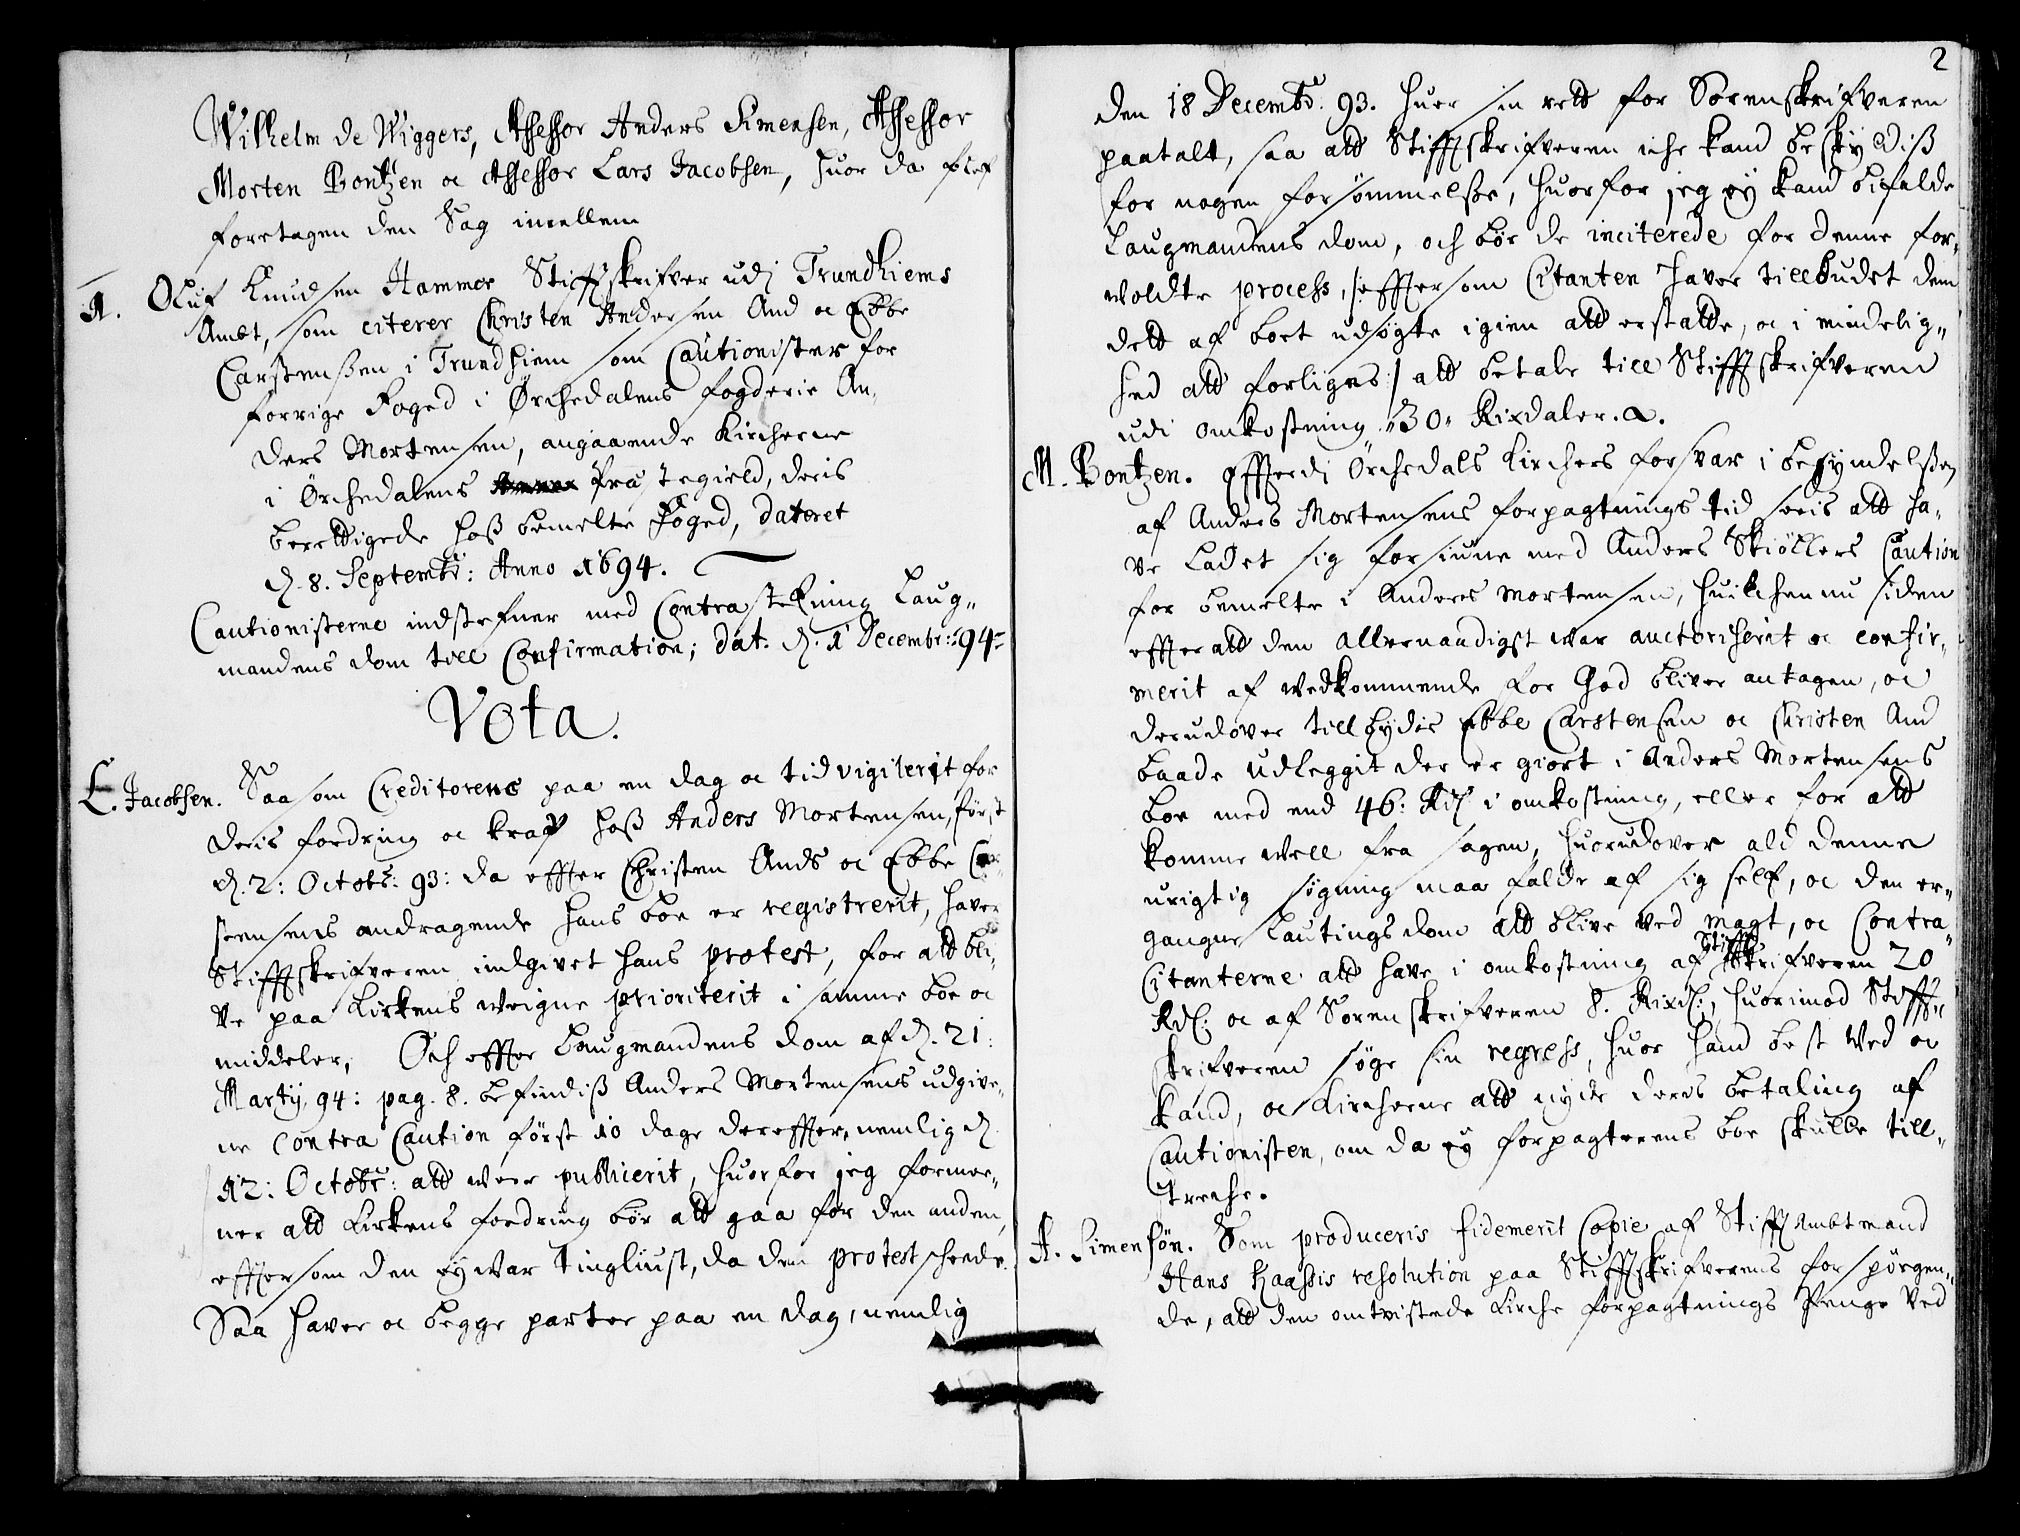 Wilhelm de Wiggers, Assessor Anders Simensen, Assessor
Morten Bontzen oc Assessor Lars Jacobsen, huor da blef
foretagen den Sag imellem
1. Oluf Knudsen Hammer Stifftskrifver udj Trundhiems
Ambt, som citerer Christen Andersen And oc Ebbe
Carstenssen i Trundhiem som Cautionister for
forrige Foged i Ørchedalens fogderie An-
ders Mortensen, angaaende Kircherne
i Ørchedalens Præstegield, deris
berettigede hoss bemelte Foged, dateret
d. 8. Septembr: Anno 1694.
Cautionisterne indstefner med Contrasteffning Laug-
mandens dom till Confirmation; dat. d. 1 Decembr: 94
Vota.
L. Jacobsen. Saasom Creditorene paa en dag oc tid vigilerit for
deris fordring oc kraf hoss Anders Mortensen, først
d. 2: Octobr: 93: da effter Christen Ands oc Ebbe Car-
stensens andragende hans boe er registrerit, haver
Stifftskrifveren indgivet hans protest, for att bli-
ve paa Kirkens weigne prioriterit i samme boe oc
middeler, Och effter Laugmandens dom af d. 21:
Martij 94: pag. 8. befindiss Anders Mortensens udgive-
ne Contra Caution først 10 dage dereffter, nemlig d.
12: Octobr: att were publicerit, huorfor jeg formee-
ner att Kirkens fordring bør att gaa for den anden,
effttersom den ey war tingliust, da den protest scheede.
Saa haver oc begge parter paa en dag, nemlig
2
den 18 Decembr: 93. huer sin rett for Sorenskrifveren
paatalt, saa att Stifftskrifveren iche kand beskyldiss
for nogen forsømmelsse, huorfor jeg ey kand bifalde
Laugmandens dom, och bør de inciterede for denne for-
woldte process, /: efftersom Citanten haver tillbudet dem
dett af boet udsøgte igien att erstatte, oc i mindelig-
hed att forliges :/ att betale till Stifftskrifveren
udi omkostning 30 Rixdaler.
M. Bontzen. Effterdi Ørchedals Kirchers forsvar i begyndelssen
af Anders Mortensens forpagtnings tid sees att ha-
ve ladet sig forsiune med Anders Skiøllers Caution
for bemelte Anders Mortensen, huilchen nu siden
effter att den allernaadigst war auctoriserit oc confir-
merit af wedkommende for God bliver antagen, oc
derudover tillbydes Ebbe Carstensen oc Christen And
baade udlegget der er giort i Anders Mortensens
boe med end 46: Rdl i omkostning, eller for att
komme well fra sagen, huorudover ald denne
urigtig søgning maa falde af sig self, oc den er-
gangne Lautings dom att blive ved magt, oc Contra-
Citanterne att have i omkostning af Stifftskrifveren 20
Rdl: oc af Sorenskrifveren 8. Rixdl:, huorimod Stifft-
skrifveren søge sin regress, huor hand best ved oc
kand, oc Kircherne att nyde deres betaling af
Cautionisten, om da ey forpagterens boe skulle till-
streche.
A. Simensøn. Som produceris fidemerit Copie af Stifft Ambtmand
Hans Kaassis resolution paa Stifftskrifverens forspørgen-
de, att den omtvistede Kirche forpagtnings Penge ved